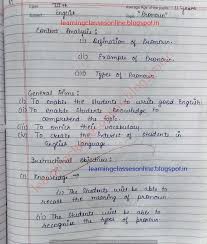 VIth
Average Age of the pupils: 11 years
English
"Pronoun"
learningclassesonline.blogspot.in
Content Analysis :
(i) Definition of Pronoun.
(ii) Example of Pronoun.
(iii) Types of Pronoun.
General Aims :
(i) To enable the students to write good English.
(ii) To enable Students Knowledge to
comprehend the topic.
(iii) To enrich their vocabulary.
(iv) To create the interest of students in
English language.
Instructional Objectives :
learningclassesonline.blogspot.in
(i) Knowledge →
(i) The Students will be able to
recall the meaning of pronoun.
(ii) The Students will be able to
recognise the types of pronoun.